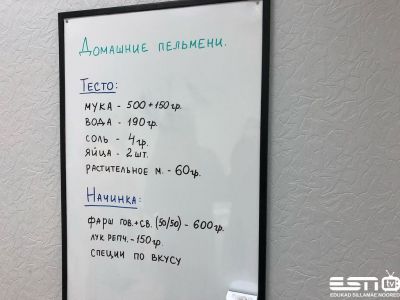 Домашние пельмени.
Тесто:
мука - 500 + 150 гр.
вода - 190 гр.
соль - 4 гр.
яйца - 2 шт.
растительное м. - 60 гр.
Начинка:
фарш гов. + св. (50/50) - 600 гр.
лук репч. - 150 гр.
специи по вкусу
ESN tv
EDUKAD SILLAMÄE NOORED